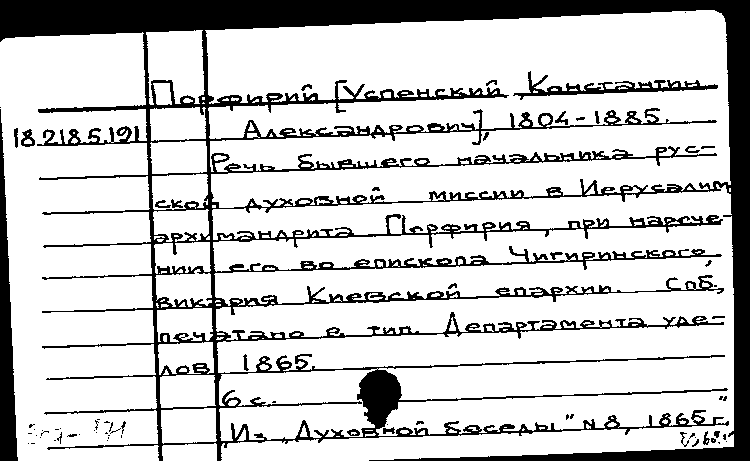 Порфирий [Успенский, Константин
18.218.5.191 Александрович], 1804-1885.
Речь бывшего начальника рус-
ской духовной миссии в Иерусалим
архимандрита Порфирия, при нарече-
нии его во епископа Чигиринского,
викария Киевской епархии. Спб,
печатано в тип. Департамента уде-
лов, 1865.
6 с.
"Из "Духовной беседы" N 8, 1865 г."